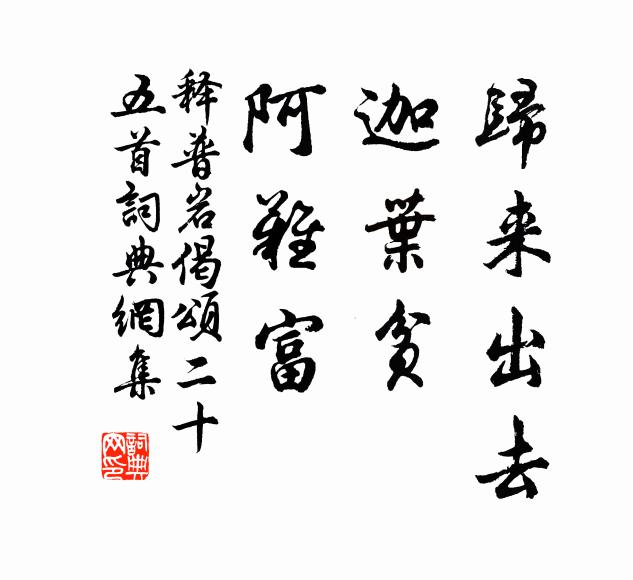 歸来出去
迦葉貧
阿難富
释普岩偈頌二十
五首詞典網集
詞典
网印